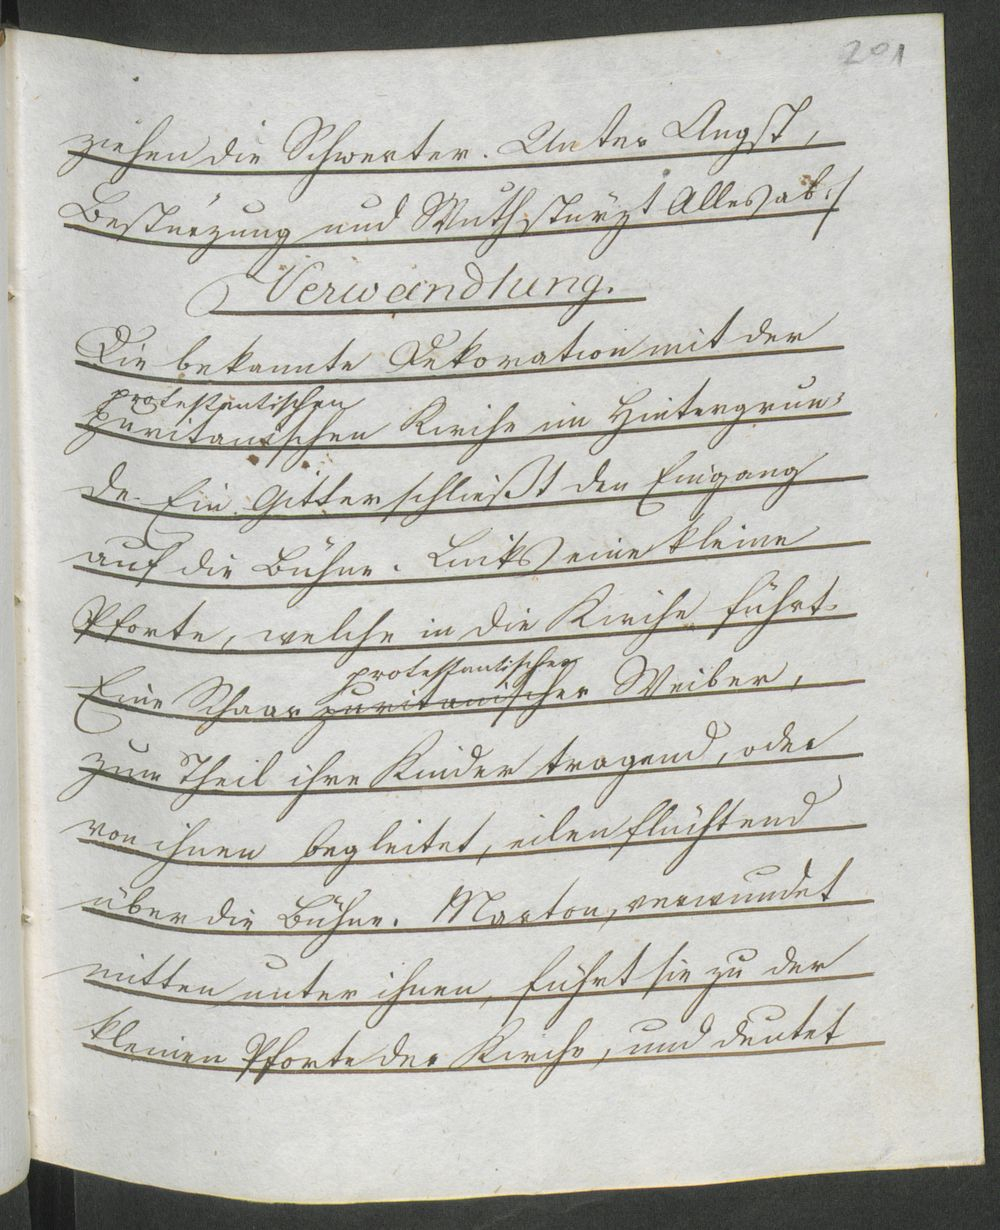 201
ziehen die Schwerter. Unter Angst,
Bestürzung und Wuth stürzt Alles ab:/
Verwandlung.
Die bekannte Dekoration mit der
protestantischen
puritanischen Kirche im Hintergrun-
de. Ein Gitter schließt den Eingang
auf die Bühne. Links eine kleine
Pforte, welche in die Kirche führt.
protestantischer
Eine Schaar puritanischer Weiber,
zum Theil ihre Kinder tragend, oder
von ihnen begleitet, eilen flüchtend
über die Bühne. Marton, verwundet
mitten unter ihnen, führt sie zu der
kleinen Pforte der Kirche, und deutet